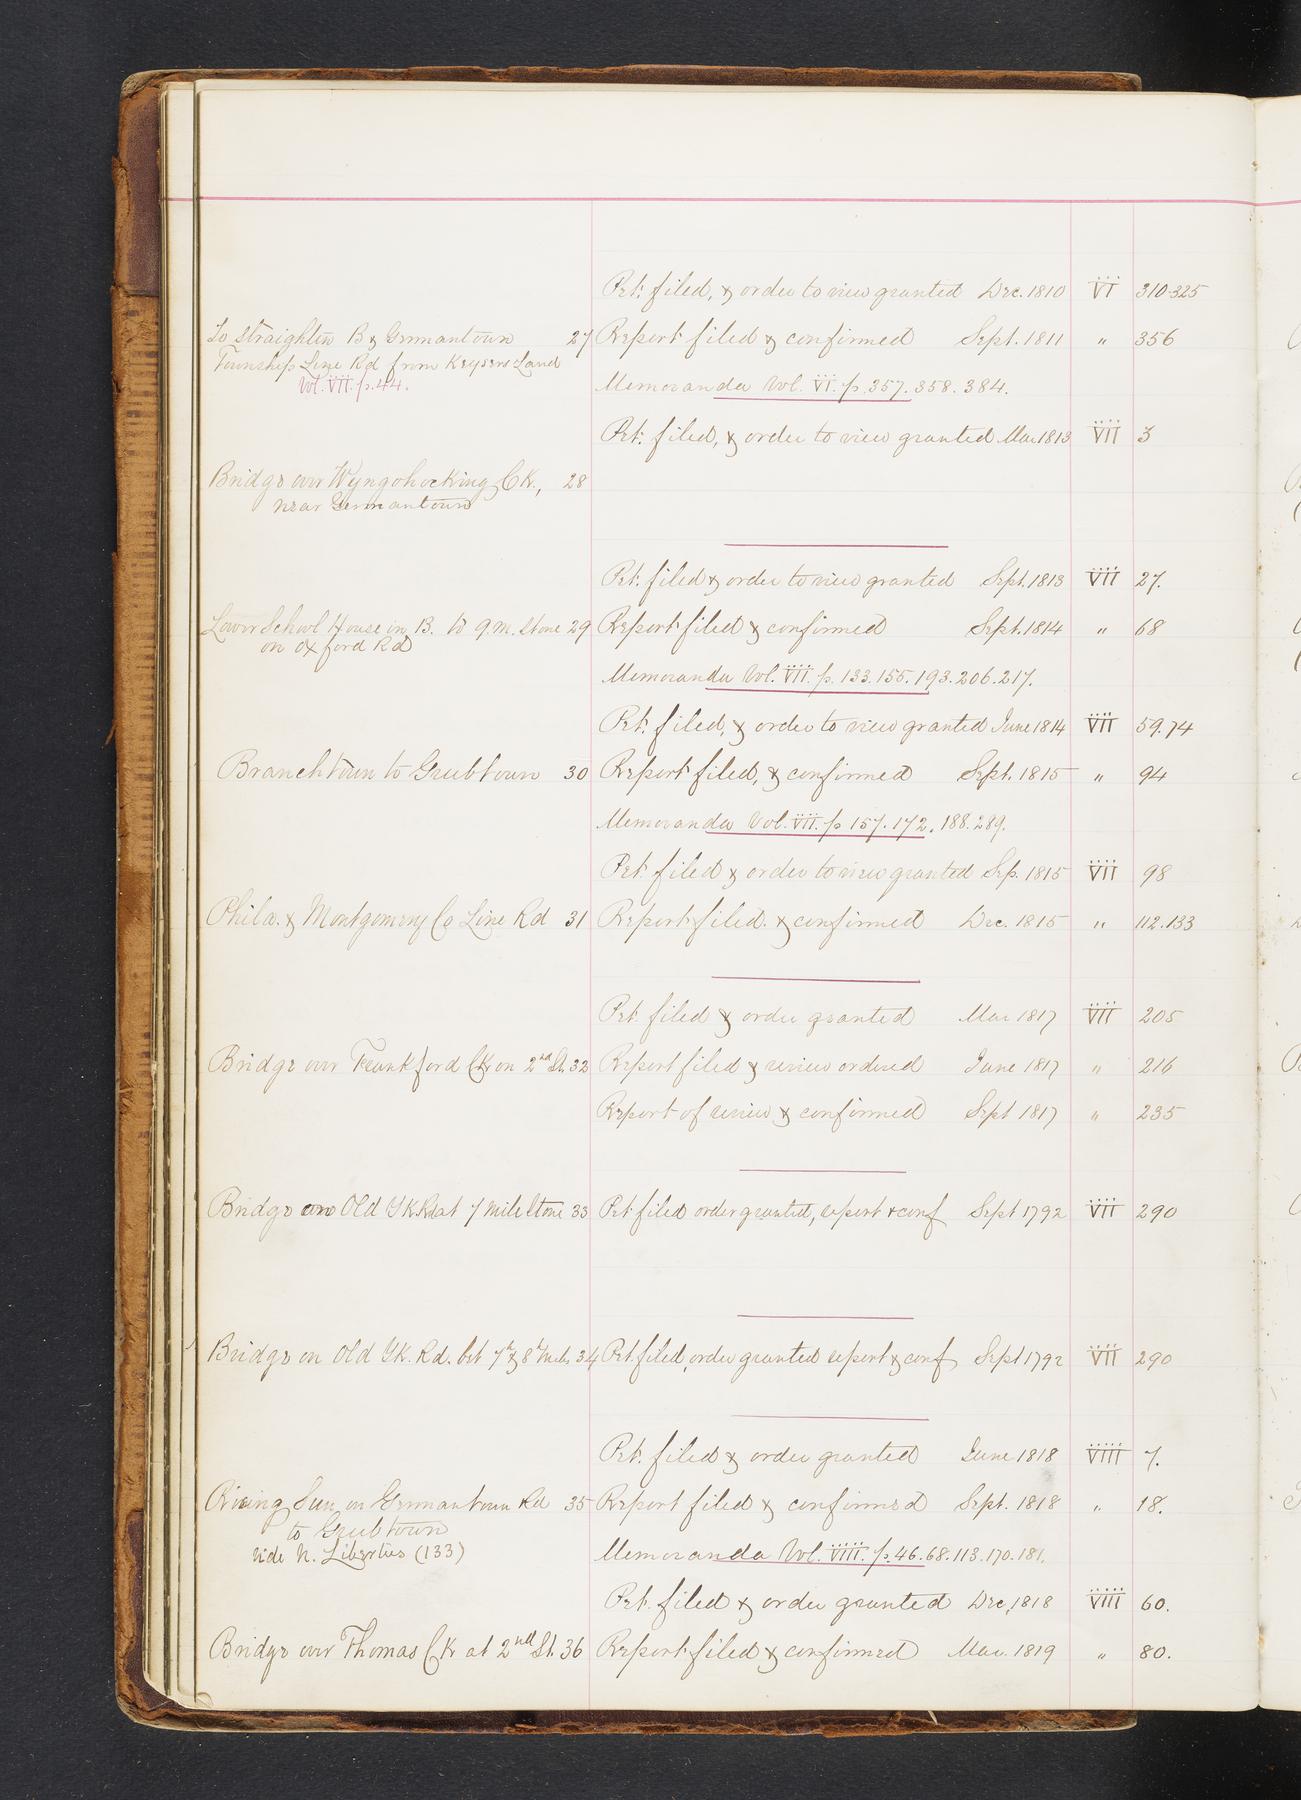 Pet. filed, & order to view granted Dec. 1810 VI 310-325
To straighten B & Germantown 27 Report filed & confirmed Sept. 1811 " 356
Township Line Rd from Keysers Land
Vol. VII. p. 44.
Memoranda Vol. VI. p. 357. 358. 384.
Pet. filed, & order to view granted Mar 1813 VII 3
Bridge over Wyngohocking Ck., 28
near Germantown
Pet. filed & order to view granted Sept. 1813 VII 27.
Lower School House in B. to 9 m. Stone 29 Report filed & confirmed Sept. 1814 " 68
on Oxford Rd
Memoranda Vol. VII. p. 133. 155. 193. 206. 217.
Pet. filed, & order to view granted June 1814 VII 59. 74
Branchtown to Grubtown 30 Report filed, & confirmed Sept. 1815 " 94
Memoranda Vol. VII. p 157. 172. 188. 289.
Pet. filed & order to view granted Sep. 1815 VII 98
Phila. & Montgomery Co Line Rd 31 Report filed. & confirmed Dec. 1815 " 112. 133
Pet. filed & order granted Mar 1817 VII 205
Bridge over Frankford Ck on 2nd St. 32 Report filed & review ordered June 1817 " 216
Report of review & confirmed Sept 1817 " 235
Bridge on Old Yk Rd at 7 mile stone 33 Pet filed order granted, report & conf Sept 1792 VII 290
Bridge on Old Yk. Rd. bet 7th & 8th mils 34 Pet. filed, order granted report & conf Sept 1792 VII 290
Pet. filed & order granted June 1818 VIII 7.
Rising Sun, on Germantown Rd 35 Report filed & confirmed Sept. 1818 " 18.
to Grubtown
Vide N. Liberties (133)
Memoranda Vol. VIII. p. 46. 68. 113. 170. 181.
Pet. filed & order granted Dec, 1818 VIII 60.
Bridge over Thomas Ck at 2nd St. 36 Report filed & confirmed Mar. 1819 " 80.